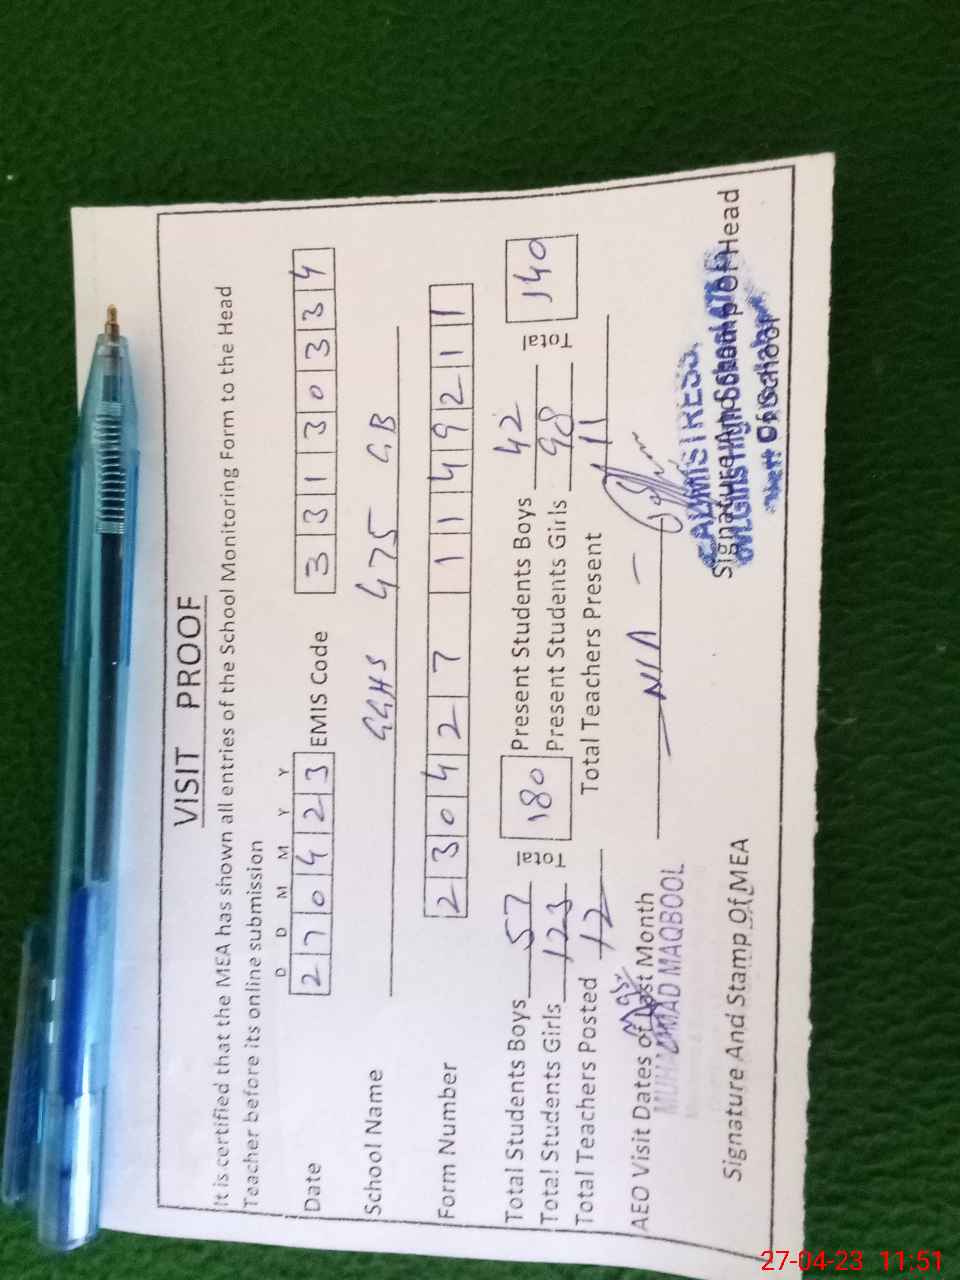 VISIT PROOF
It is certified that the MEA has shown all entries of the School Monitoring Form to the Head
Teacher before its online submission
D D M M Y Y
Date 2 7 0 4 2 3 EMIS Code 3 3 1 3 0 3 3 4
School Name GGHS 475 GB
Form Number 2 3 0 4 2 7 1 1 4 9 2 1 1
Total Students Boys 57 Total 180 Present Students Boys 42 Total 140
Total Students Girls 123 Present Students Girls 98
Total Teachers Posted 12 Total Teachers Present 11
AEO Visit Dates of Last Month N/A
MUHAMMAD MAQBOOL
Signature And Stamp Of MEA
HEADMISTRESS
Signature And Stamp Of Head
Of School
27-04-23 11:51